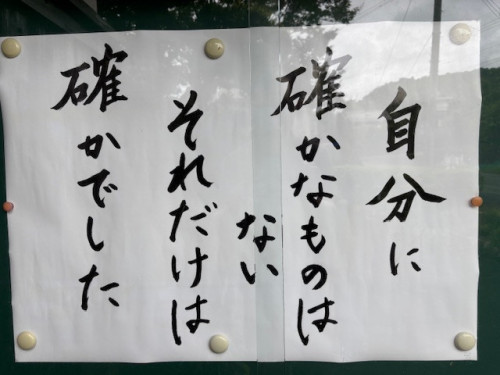 自分に
確かなものは
ない
それだけは
確かでした